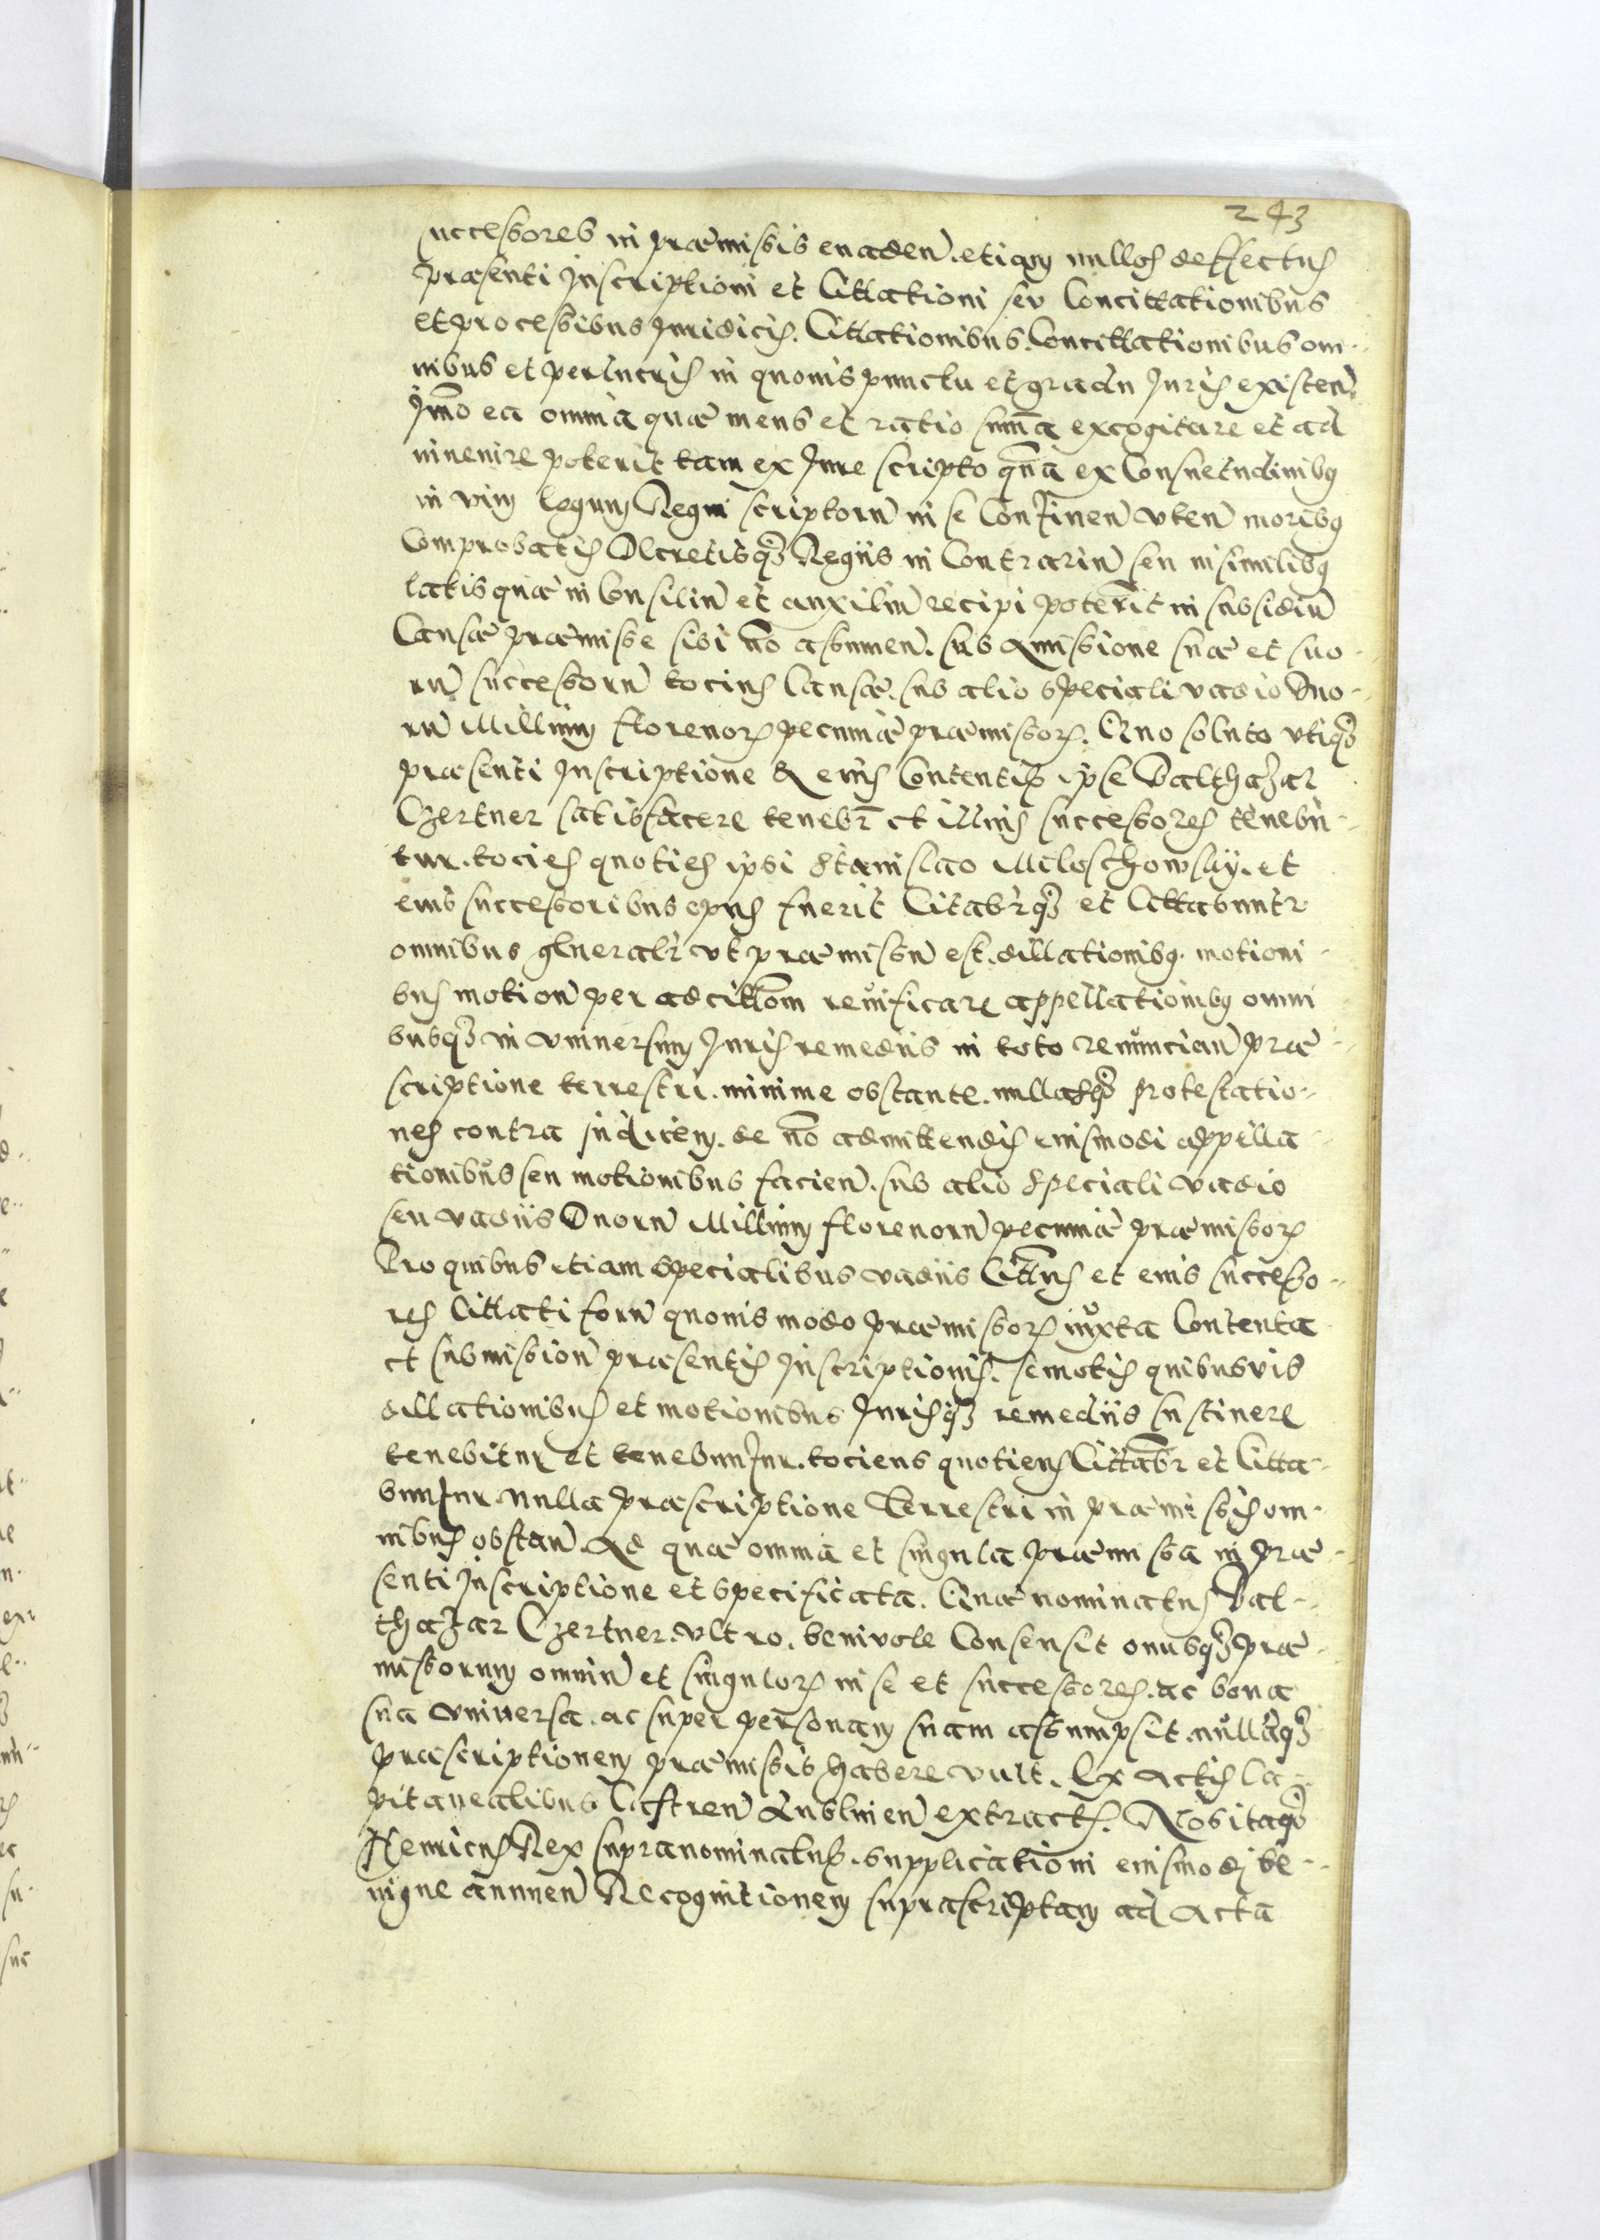 243
successores in præmissis euaden̄. etiam nullos deffectus
præsenti Inscriptioni et Cittationi seu Concittationibus
et processibus Iuridicis. Cittationibus. Concittationibus om-
nibus et perlucris in quouis punctu et gradu Iuris existen̄.
Imo ea omnia quæ mens et ratio sum̄a excogitare et ad
inuenire poterit tam ex Iure scripto quā ex Consuetudinibus
in vim legum Regni scriptoru̅ in se Continen̄ vten̄ moribus
Comprobatis Decretisq̃ Regiis in Contrariu̅ seu in similibus
latis quæ in Consiliu̅ et auxiliu̅ recipi poterit in subsidiu̅
Causæ præmisse sibi no̅ assumen̄. sub amissione suæ et suo-
ru̅ successoru̅ tocius Causæ. sub alio speciali vadio Duo-
ru̅ Millium florenor̃ pecuniæ præmissor̃. Quo soluto vtiq̃
præsenti Inscriptione & eius Contentis ipse Balthazar
Czertner satisfacere teneb̃r et illius successores tenebu̅-
tur. tocies quoties ipsi Stanislao Miloschowsky. et
eius successoribus opus fuerit Citab̃rq̃ et Cittabunt̃r
omnibus general̃r vt præmissu̅ est. dillationibus. motioni-
bus motion̄ per adcittõm reuificare appellationibus omni-
busq̃ in vniuersum Iuris remediis in toto renuncian̄ præ-
scriptione terrestri. minime obstante. nullasq̃ protestatio-
nes contra Iudicem. de no̅ admittendis eiusmodi appella-
tionibus seu motionibus facien̄. sub alio speciali vadio
seu vadiis Duoru̅ Millium florenoru̅ pecuniæ præmissor̃
Pro quibus etiam specialibus vadiis Citt̃us et eius successo-
res Cittati foru̅ quouis modo præmissor̃ iuxta Contenta
et submission̄ præsentis Inscriptionis. semotis quibusvis
dillationibus et motionibus Iurisq̃ remediis sustinere
tenebitur et tenebuntur. tociens quotiens Cittab̃r et Citta-
buntur nulla præscriptione Terrestri in præmissis om-
nibus obstan̄. Ad quæ omnia et singula præmissa in præ-
senti Inscriptione et specificata. Quæ nominatus Bal-
thazar Czertner. vltro. beniuole Consensit onusq̃ præ-
missorum omniu̅ et singulor̃ in se et successores. ac bona
sua vniuersa. ac super personam suam assumpsit. nullāq̃
præscriptionem præmissis habere vult. Ex actis Ca-
pitanealibus Castren̄ Lublinen̄ extract̃. Nos itaq̃
Henricus Rex supranominatus. supplicationi eiusmodi be-
nigne annuen̄ Recognitionem suprascriptam ad acta